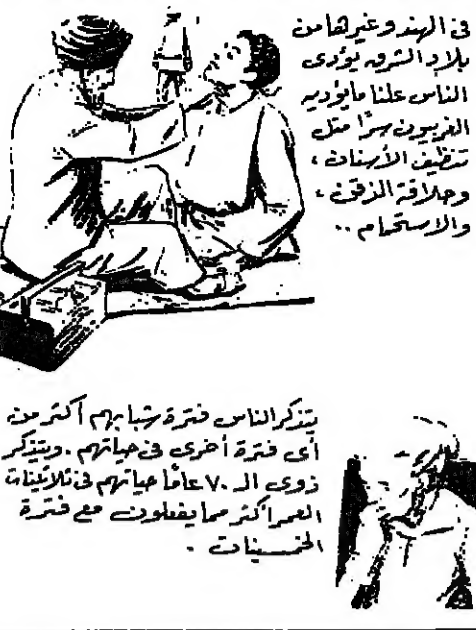 فى الهند وغيرها من
بلاد الشرق يؤدى
الناس علنا مايؤديه
الغربيون سرًا مثل
تنظيف الأسنان ،
وحلاقة الذقن ،
والاستحمام ..
يتذكر الناس فترة شبابهم أكثر من
أى فترة أخرى فى حياتهم . ويتذكر
ذوى الـ ٧٠ عامًا حياتهم فى ثلاثينات
العمر أكثر مما يفعلون مع فترة
الخمسينات .